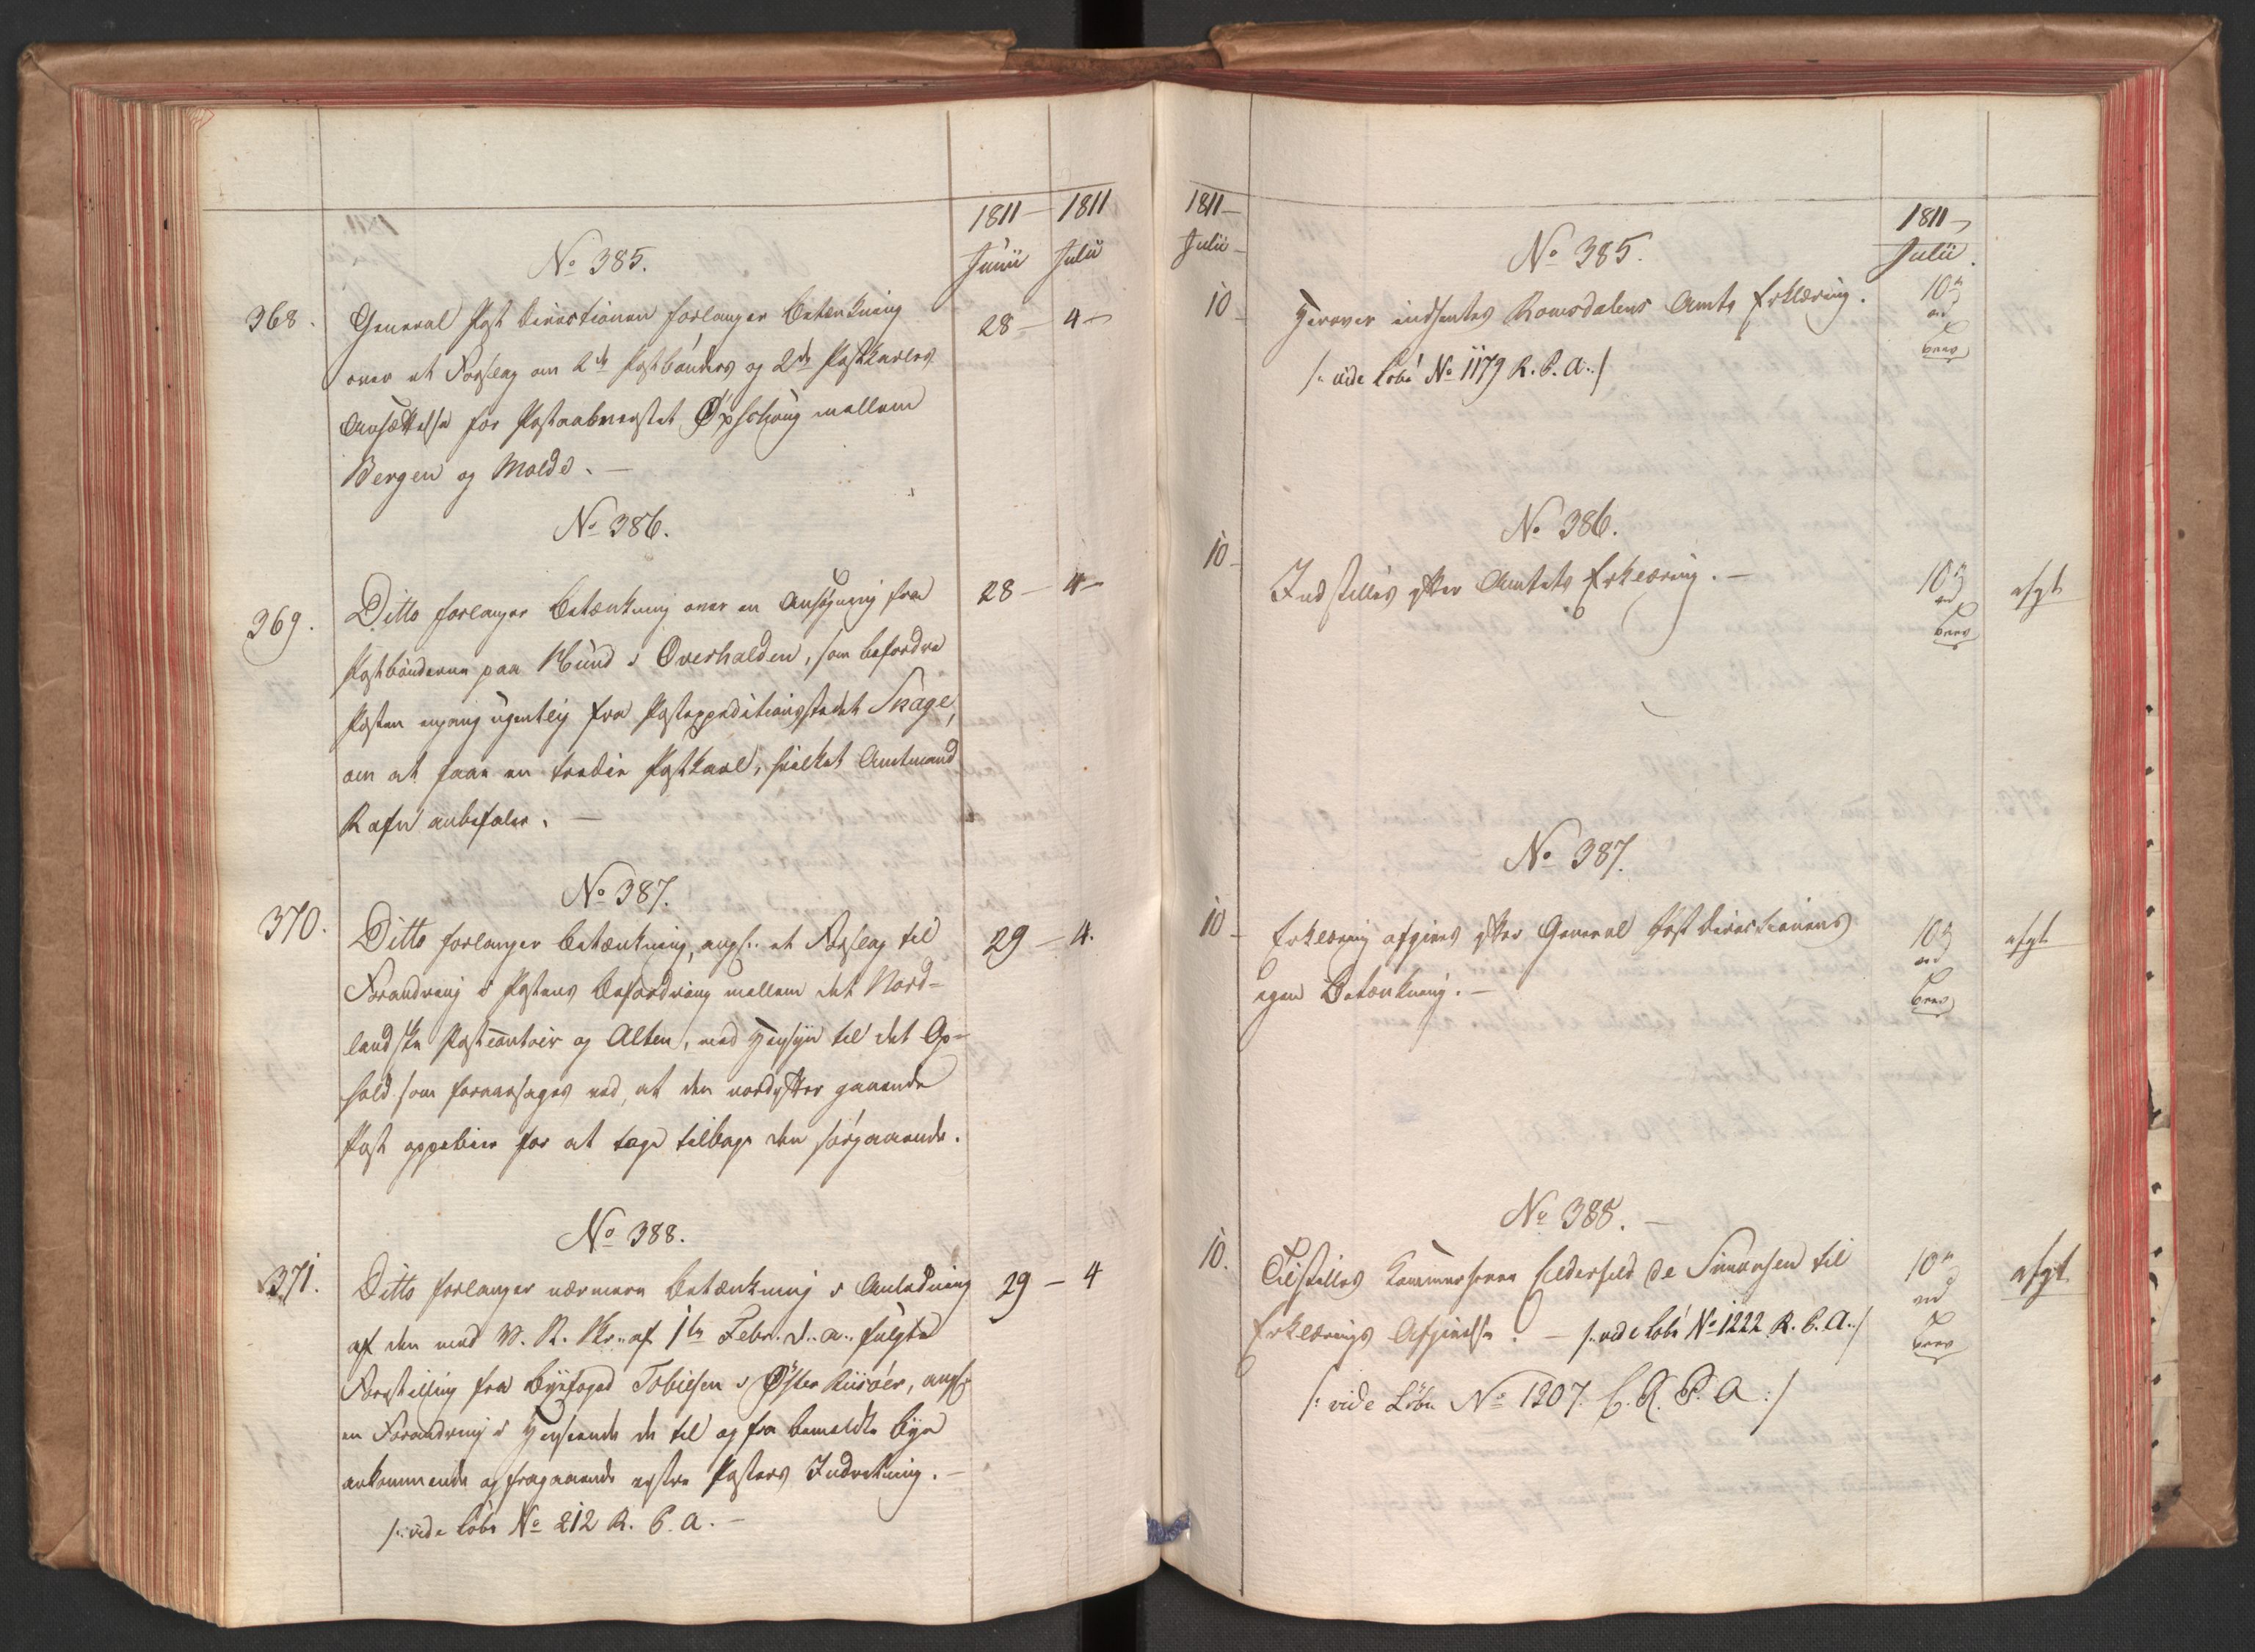 1811 — 1811
Junii Julii
No 385.
368. General Post Directionen forlanger Betænkning 28 — 4 —
over et Forslag om 2de Postbönders og 2de Postkarles
Ansættelse for Postaabneriet Öpschoug mellem
Bergen og Molde. —
No 386.
369. Ditto forlanger Betænkning over en Ansögning fra 28 — 4 —
Postbönderne paa Hund i Overhalden, som befordre
Posten engang ugentlig fra Postexpeditionsstedet Skage,
om at faae en tredie Postkarl, hvilket Amtmand
Rafn anbefaler. —
No 387.
370. Ditto forlanger Betænkning, angl. et Forslag til 29 — 4.
Forandring i Postens Befordring mellem det Nord-
landske Postcontoir og Alten, med Hensyn til det Op-
hold som foraarsages ved, at den nordefter gaaende
Post oppebier for at tage tilbage den sörgaaende.
No 388.
371. Ditto forlanger nærmere Betænkning i Anledning 29 — 4
af den med V. R. Skr. af 1ste Febr. d. a. fulgte
Forestilling fra Byefoged Tobiesen i Öster Riisöer, angl.
en Forandring i Henseende de til og fra bemeldte Bye
ankommende og fragaaende Posters Indretning. —
/: vide Löbe No 212 R. P. A. —
1811 —
Julii —
1811
Julii.
No 385.
10 Herover indhentes Romsdalens Amts Erklæring. 10de
ved
Brev
/: vide Löbe No 1179 R. P. A. :/
No 386.
10 — Indstilles efter Amtets Erklæring. — 10de afgt
ved
Brev
No 387.
10 — Erklæring afgives efter General Post Directionens 10de afgt
ved
egen Betænkning. — Brev
No 388. —
10. Tilstilles Kammerherre Adeler de Simonsen til 10de afgt
ved
Erklærings Afgivelse. — /: vide Löbe No 1222 R. P. A. :/ Brev
/: vide Löbe No 1307. C. R. P. A :/